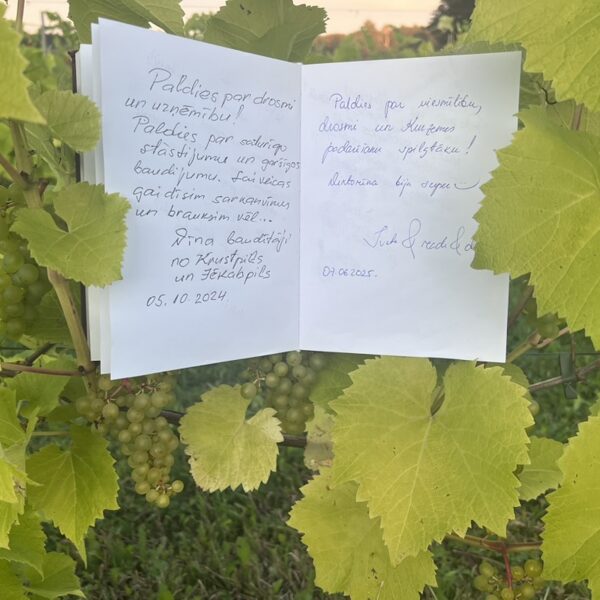 Paldies par drosmi
un uzņēmību!
Paldies par saturīgo
stāstījumu un garšīgo
baudījumu. Lai veicas
gaidīsim sarkanvīnus
un brauksim vēl...
Vīna baudītāji
no Krustpils
un Jēkabpils
05.10.2024.
Paldies par viesmīlību,
drosmi un Kurzemes
padarīšanu spilgtāku!
bija super
07.06.2025.